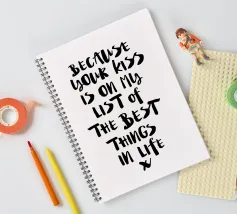 BECAUSE
YOUR KISS
IS ON MY
LIST of
THE BEST
THINGS
IN LIFE